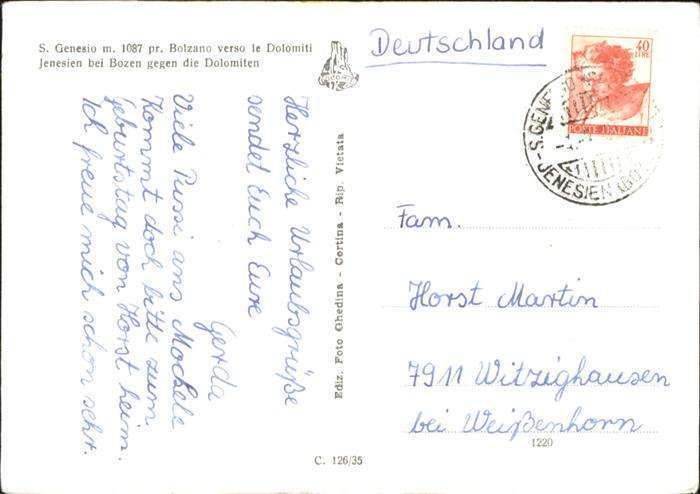 S. Genesio m. 1087 pr. Bolzano verso le Dolomiti
Jenesien bei Bozen gegen die Dolomiten
Deutschland
40
LIRE
POSTE ITALIANE
JENESIEN
Herzliche Urlaubsgrüße
sendet Euch Eure
Gerda
Viele Pussi ans Mockele
Kommt doch bitte zum
Geburtstag von Horst heim.
Ich freue mich schon sehr.
Ediz. Foto Ghedina - Cortina - Rip. Vietata
Fam.
Horst Martin
7911 Witzighausen
bei Weißenhorn
1220
C. 126/35